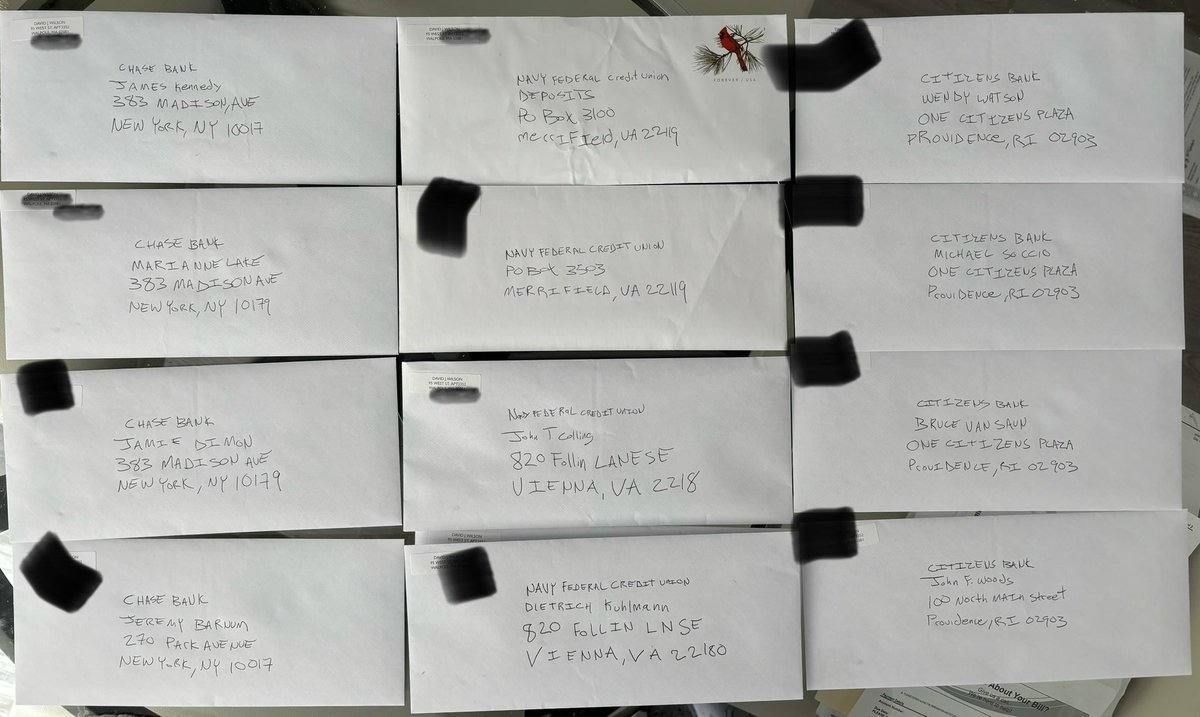 DAVID J WILSON
95 WEST ST. APT3352
CHASE BANK
JAMES Kennedy
383 MADISON, AVE
NEW YORK, NY 10017
FOREVER / USA
NAVY FEDERAL Credit union
DEPOSITS
PO Box 3100
MerriField, VA 22119
CITIZENS BANK
WENDY WATSON
ONE CITIZENS PLAZA
PROVIDENCE, RI 02903
CHASE BANK
MARIANNE LAKE
383 MADISON AVE
NEW YORK, NY 10179
NAVY FEDERAL CREDIT UNION
PO Box 3503
MERRIFIELD, VA 22119
CITIZENS BANK
MICHAEL SOCCIO
ONE CITIZENS PLAZA
Providence, RI 02903
CHASE BANK
JAMIE DIMON
383 MADISON AVE
NEW YORK, NY 10179
DAVID J WILSON
95 WEST ST. APT3352
NAVY FEDERAL CREDIT UNION
John T Collins
820 Follin LANE SE
VIENNA, VA 2218
CITIZENS BANK
BRUCE VAN SAUN
ONE CITIZENS PLAZA
ProVIDENCE, RI 02903
CHASE BANK
JEREMY BARNUM
270 PARK AVENUE
NEW YORK, NY 10017
DAVID J WILSON
NAVY FEDERAL CREDIT UNION
DIETRICH Kuhlmann
820 FOLLIN LN SE
VIENNA, VA 22180
CITIZENS BANK
John F. Woods
100 North MAIN Street
Providence, RI 02903
About Your Bill?